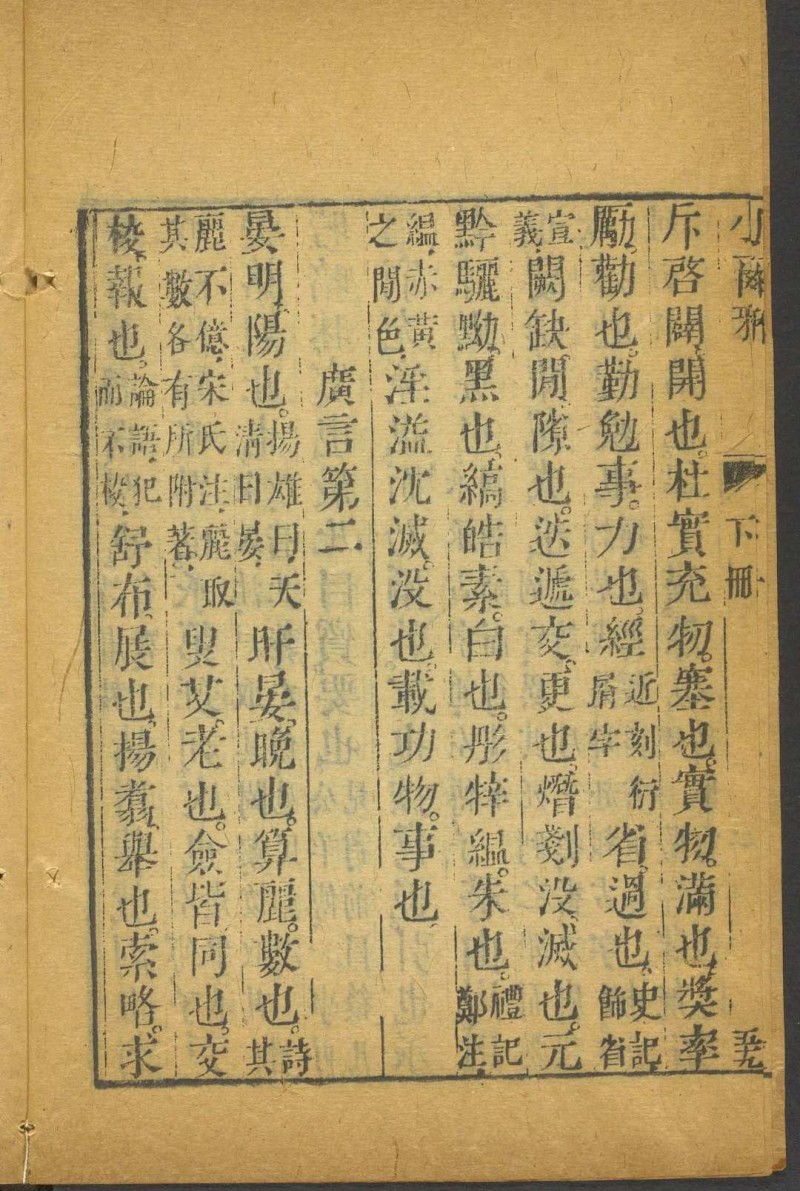 小爾雅　下冊
斥啓闢。開也。杜實充牣。塞也。實牣。滿也。奬率
勵。勸也。勤勉事。力也。經近刻衍屑字省。過也。史記飾省
宣義。闕缺閒。隙也。迭遞交。更也。熸剗没。滅也。元
黔驪黝。黑也。縞皓素。白也。彤牸縕。朱也。禮記鄭注
縕。赤黃之閒色。淫溢沈滅。没也。載功物。事也
廣言第二
晏明。陽也。揚雄曰。天清日晏。旰晏。晚也。算麗。數也。詩其
麗不億。宋氏注。麗取其數各有所附著。叟艾。老也。僉皆同也。交
校。報也。論語。犯而不校。舒布。展也。揚翥。舉也。索略。求